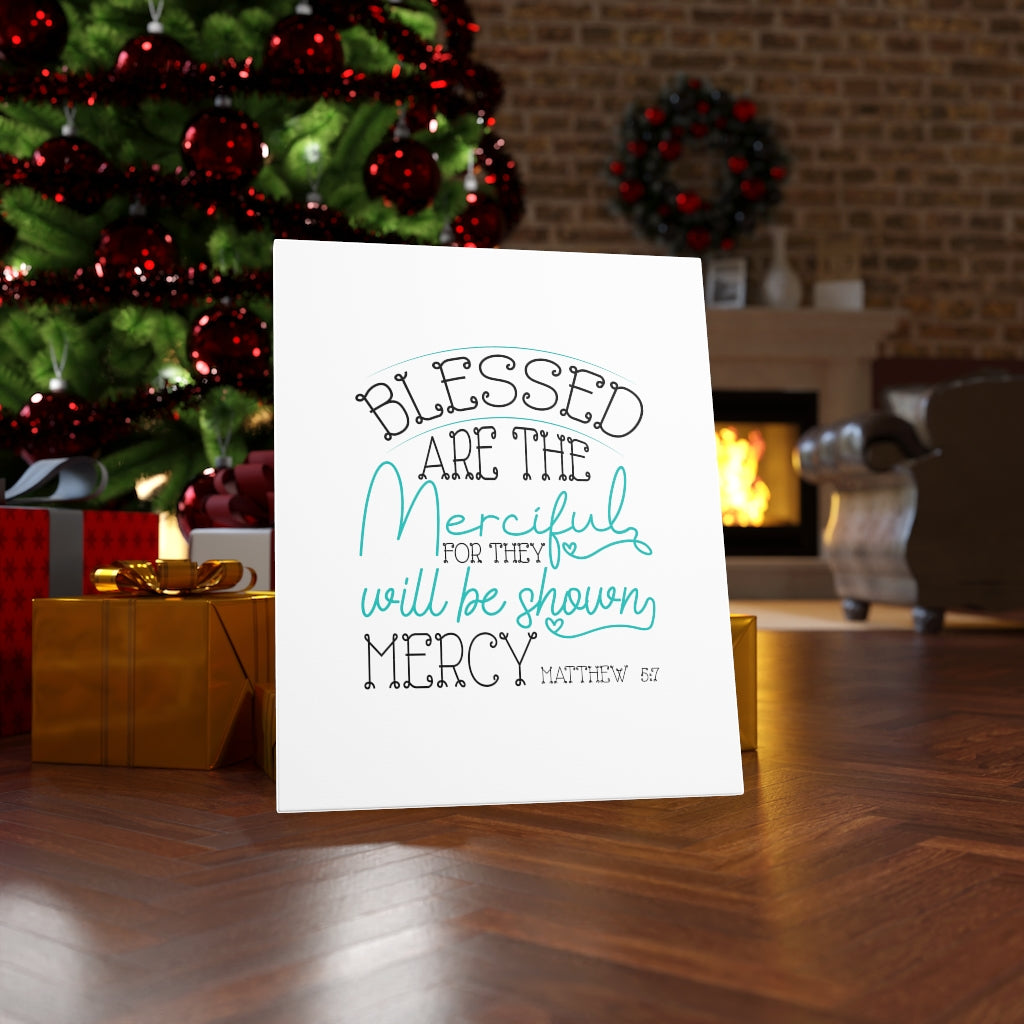 BLESSED
ARE THE
Merciful
FOR THEY
will be shown
MERCY MATTHEW 5:7